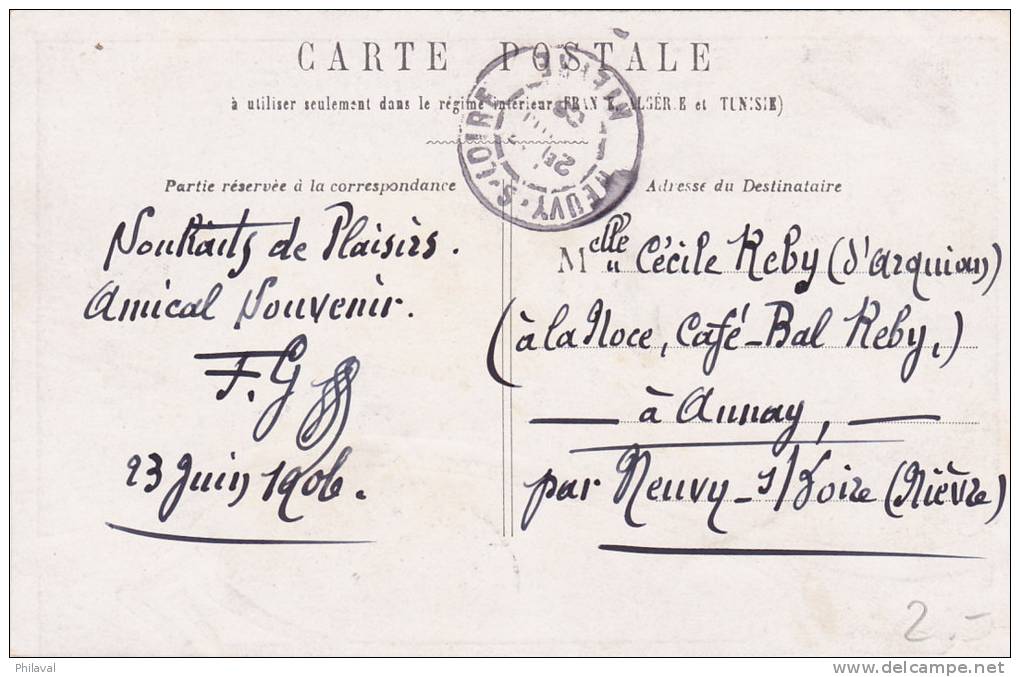 CARTE POSTALE
à utiliser seulement dans le régime intérieur (FRANCE, ALGÉRIE et TUNISIE)
NEUVY-S-LOIRE NIÈVRE
Partie réservée à la correspondance
Souhaits de Plaisirs.
Amical Souvenir.
F.G
23 Juin 1906.
Adresse du Destinataire
Melle Cécile Reby (d'Arquian)
(à la Noce, Café-Bal Reby,)
à Annay,
par Neuvy-s/Loire (Nièvre)
2.-
Philaval
delcampe.net